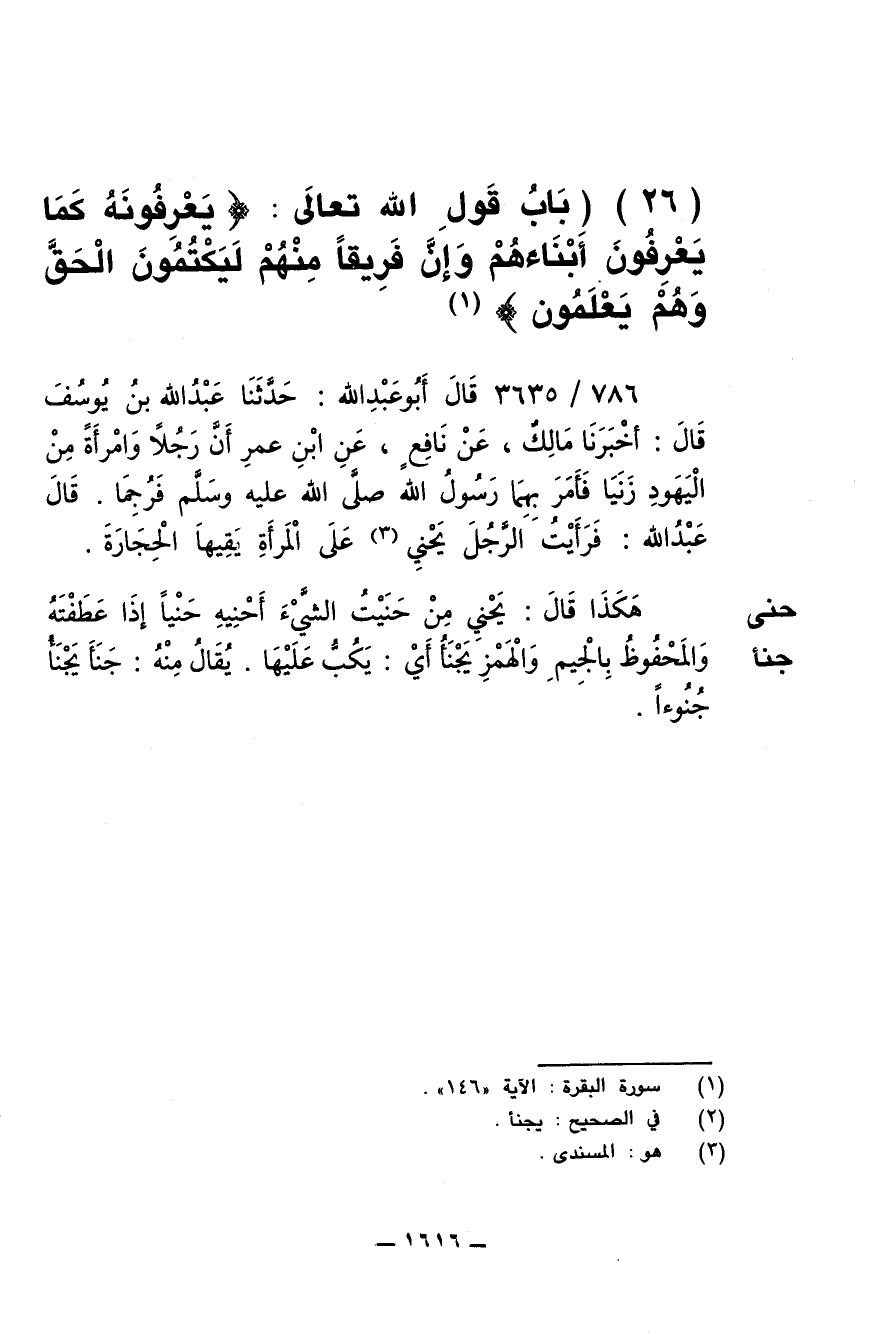 ( ٢٦ ) ( بَابُ قَولِ الله تعالَى : ﴿ يَعْرِفُونَهُ كَمَا
يَعْرِفُونَ أَبْنَاءهُمْ وَإِنَّ فَرِيقاً مِنْهُمْ لَيَكْتُمُونَ الْحَقَّ
وَهُمْ يَعْلَمُون ﴾ (١)
٧٨٦ / ٣٦٣٥ قَالَ أَبُوعَبْدِالله : حَدَّثَنَا عَبْدُالله بنُ يُوسُفَ
قَالَ : أخْبَرَنَا مَالِكٌ ، عَنْ نَافِعٍ ، عَنِ ابْنِ عمرِ أَنَّ رَجُلًا وَامْرأَةً مِنْ
الْيَهودِ زَنَيَا فَأَمَرَ بِهِمَا رَسُولُ الله صلَّى الله عليه وسَلَّم فَرُجِمَا . قَالَ
عَبْدُالله : فَرَأَيْتُ الرَّجُلَ يَحْنِي (٣) عَلَى الْمَرأَةِ يَقِيهاَ الْحِجَارَةَ .
حنى هَكَذَا قَالَ : يَحْنِي مِنْ حَنَيْتُ الشيَّءَ أَحْنِيهِ حَنْياً إذَا عَطَفْتَهُ
جنأ وَالمَحْفُوظُ بِالْجِيمِ وَالْهَمْزِ يَجْنَأُ أَيْ : يَكُبُّ عَلَيْهَا . يُقَالُ مِنْهُ : جَنَأَ يَجْنَأُ
جُنُوءاً .
(١) سورة البقرة : الآية «١٤٦» .
(٢) في الصحيح : يجنأ .
(٣) هو : المسندى .
ــ ١٦١٦ ــ